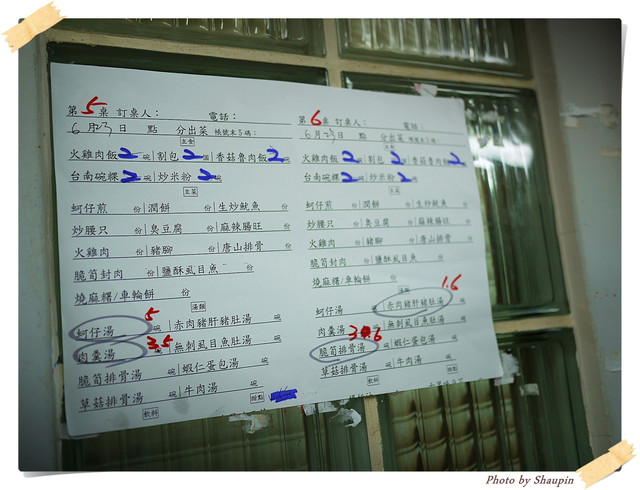 第5桌 訂桌人： 電話：
6月23日 點 分出菜 帳號末5碼：
主食
火雞肉飯2碗|割包2個|香菇魯肉飯2碗
台南碗粿2碗|炒米粉2
主菜
蚵仔煎 份|潤餅 份|生炒魷魚 份
炒腰只 份|臭豆腐 份|麻辣腸旺 份
火雞肉 份|豬腳 份|唐山排骨 份
脆筍封肉 份|鹽酥虱目魚 份
燒麻糬/車輪餅 份
湯類
蚵仔湯 5 碗|赤肉豬肝豬肚湯 碗
肉羹湯 3.5 碗|無刺虱目魚肚湯 碗
脆筍排骨湯 碗|蝦仁蛋包湯 碗
草菇排骨湯 碗|牛肉湯 碗
飲料 甜點
第6桌 訂桌人： 電話：
6月23日 點 分出菜 帳號末5碼：
火雞肉飯2碗|割包2個|香菇魯肉飯2碗
台南碗粿2碗|炒米粉2
主菜
蚵仔煎 份|潤餅 份|生炒魷魚 份
炒腰只 份|臭豆腐 份|麻辣腸旺 份
火雞肉 份|豬腳 份|唐山排骨 份
脆筍封肉 份|鹽酥虱目魚 份
燒麻糬/車輪餅 份
湯類 1.6
蚵仔湯 碗|赤肉豬肝豬肚湯 碗
肉羹湯 碗|無刺虱目魚肚湯 碗
脆筍排骨湯 碗|蝦仁蛋包湯 碗
草菇排骨湯 碗|牛肉湯 碗
Photo by Shaupin